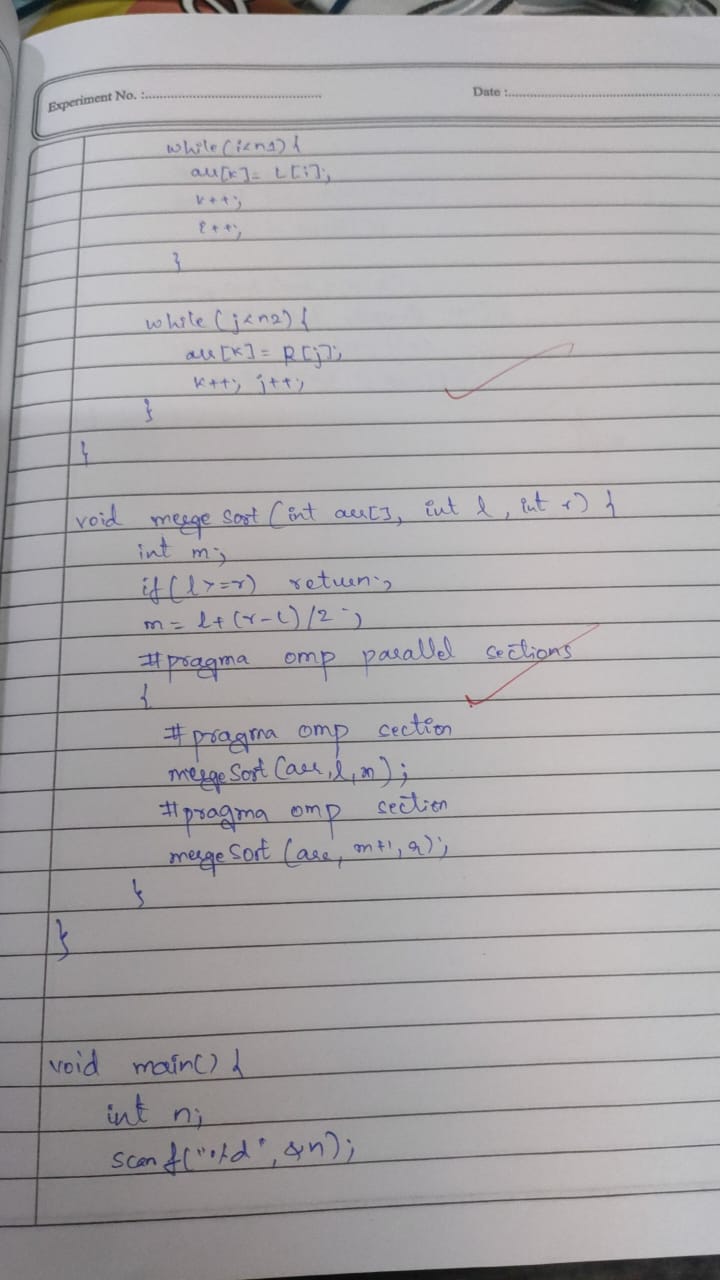 Experiment No. :
Date :
while(i<n1) {
arr[k]= L[i];
k++;
i++;
}
while (j<n2) {
arr[k]= R[j];
k++; j++;
}
}
void merge sort (int arr[], int l, int r) {
int m;
if(l>=r) return;
m= l+(r-l)/2;
#pragma omp parallel sections
{
#pragma omp section
merge Sort (arr, l, m);
#pragma omp section
merge Sort (arr, m+1, r);
}
}
void main() {
int n;
scanf("%d", &n);